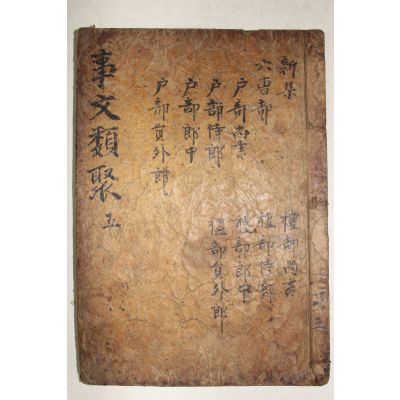 事文類聚 五
新集
六曹部
戶部尚書
戶部侍郎
戶部郎中
戶部員外郎
禮部尚書
禮部侍郎
禮部郎中
禮部員外郎